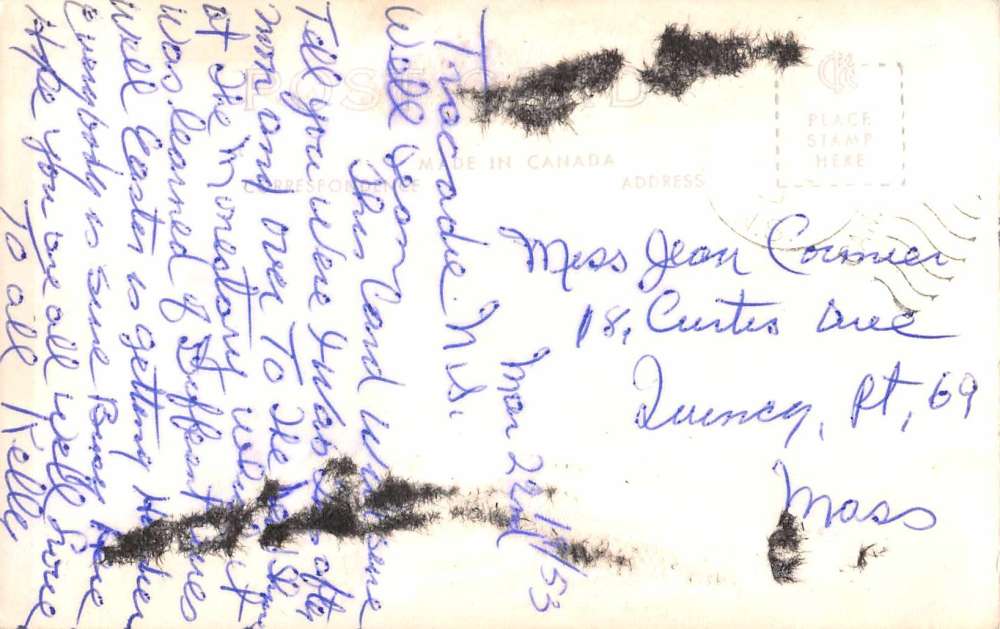 POST CARD
MADE IN CANADA
CORRESPONDENCE
ADDRESS
PLACE
STAMP
HERE
Tracadie N.S.
Mar 22nd/53
Well Jean
This Card will
Tell you were I was
and over To The
at The Monestary
was leaned of Diffrent ones
well Easter is getting
Everybody is fine Busy
Hope you are all well
To all Kelle
Miss Jean Cormier
18, Curtis Ave
Quincy, Pt, 69
Mass